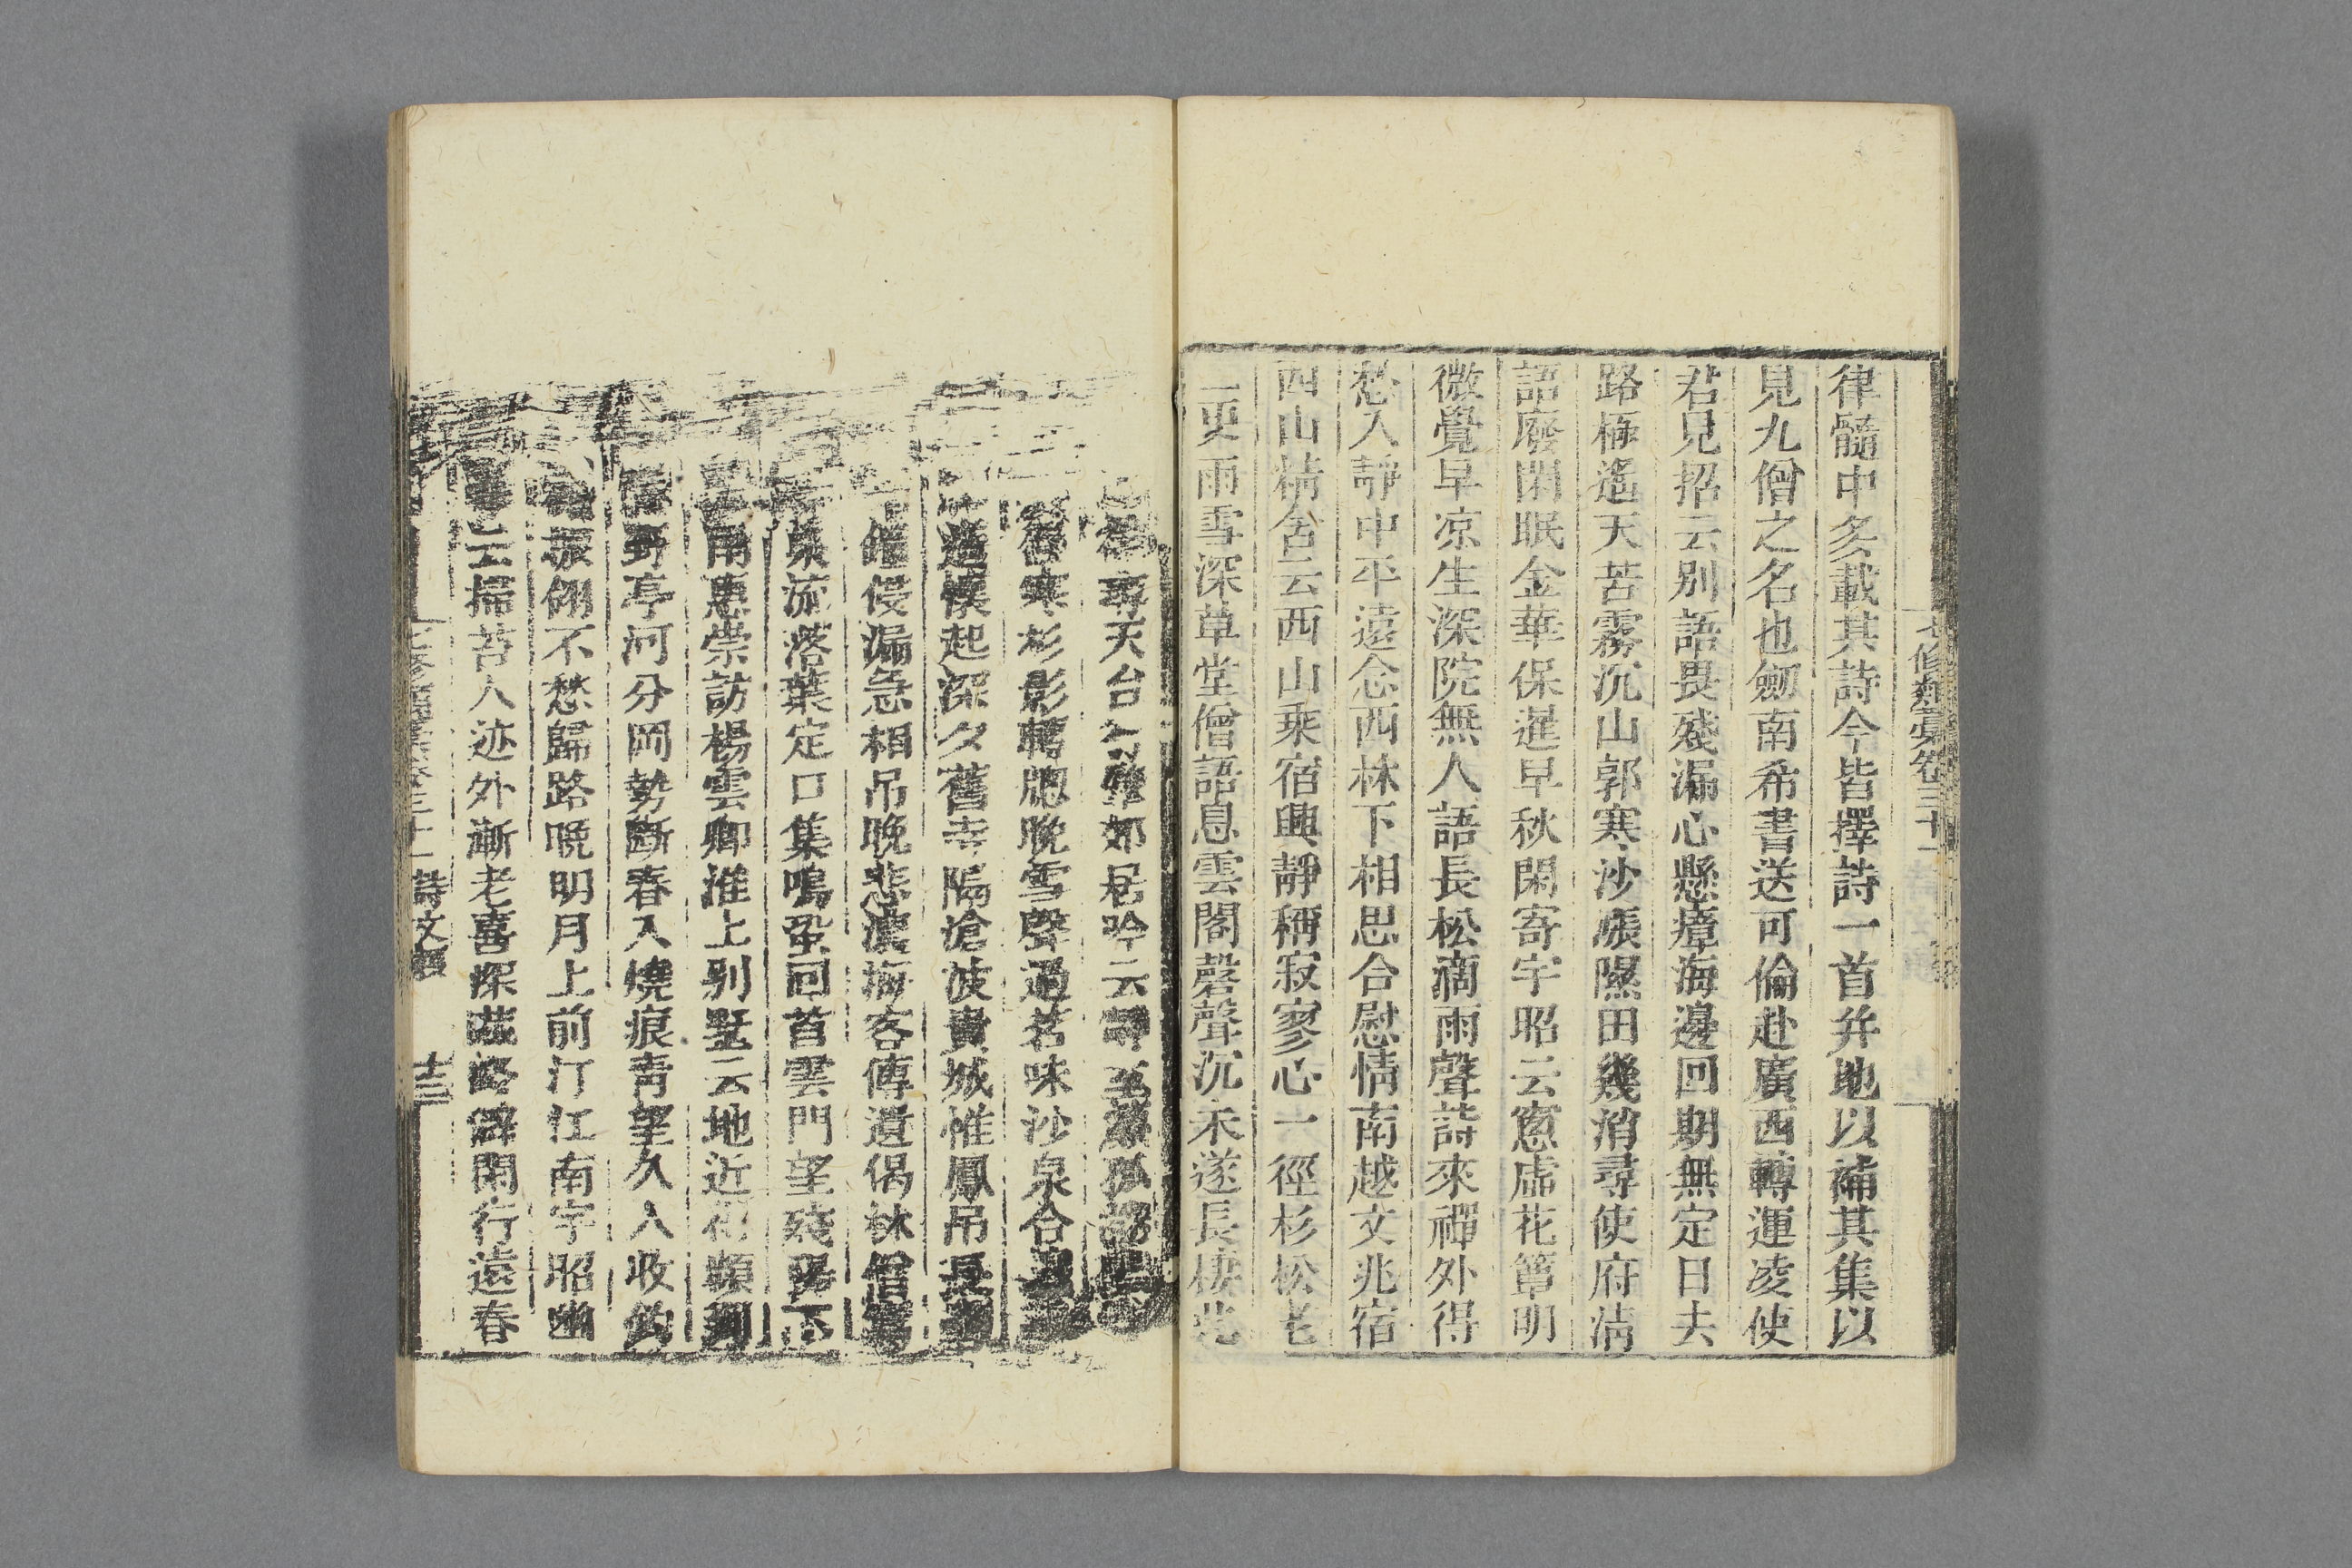 七修類稾卷三十一
律髓中多載其詩今皆擇詩一首并地以補其集以
見九僧之名也劒南希書送可倫赴廣西轉運凌使
君見招云别語畏殘漏心懸瘴海邊回期無定日去
路極遙天苦霧沉山郭寒沙漲隰田幾消尋使府清
話廢閑眠金華保暹早秋閑寄宇昭云窓虛花簟明
微覺早凉生深院無人語長松滴雨聲詩來禪外得
愁入靜中平遠念西林下相思合慰情南越文兆宿
西山精舍云西山乘宿興靜稱寂寥心一徑杉松老
三更雨雪深草堂僧語息雲閣磬聲沉未遂長棲
尋天台郊居吟云
寒杉影轉窓晚雪聲過茗味沙泉合
遙懷起深夕舊寺隔滄波貴城惟鳳吊
鐘侵漏急相吊晚悲濃海客傳遺偈林僧
泉流落葉定口集鳴蛩回首雲門望殘陽下
雨惠崇訪楊雲卿淮上别墅云地近頻到
野亭河分岡勢斷春入燒痕青望久人收釣
振翎不愁歸路晩明月上前汀江南宇昭幽
云掃苔人迹外漸老喜深藏路僻閑行遠春
詩文類
十三